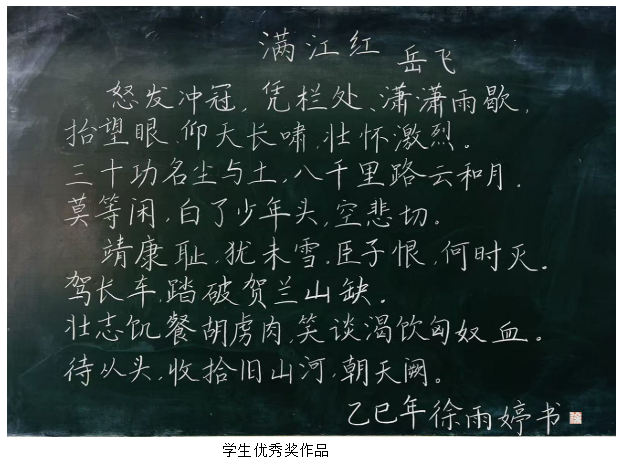 满江红 岳飞
怒发冲冠，凭栏处、潇潇雨歇，
抬望眼、仰天长啸，壮怀激烈。
三十功名尘与土，八千里路云和月．
莫等闲，白了少年头，空悲切。
靖康耻，犹未雪．臣子恨，何时灭。
驾长车，踏破贺兰山缺．
壮志饥餐胡虏肉，笑谈渴饮匈奴血。
待从头，收拾旧山河，朝天阙。
乙巳年徐雨婷书
学生优秀奖作品